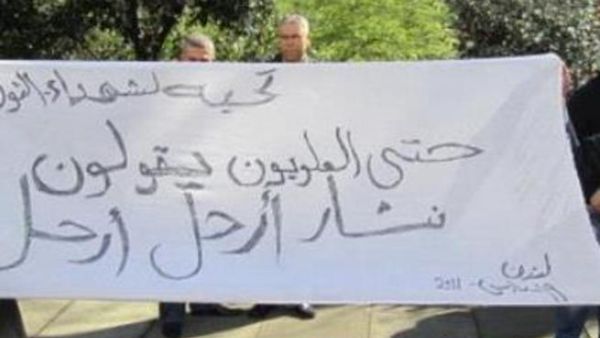 تحية لشهداء
حتى العلويون يقولون
بشار أرحل أرحل
لندن
2011